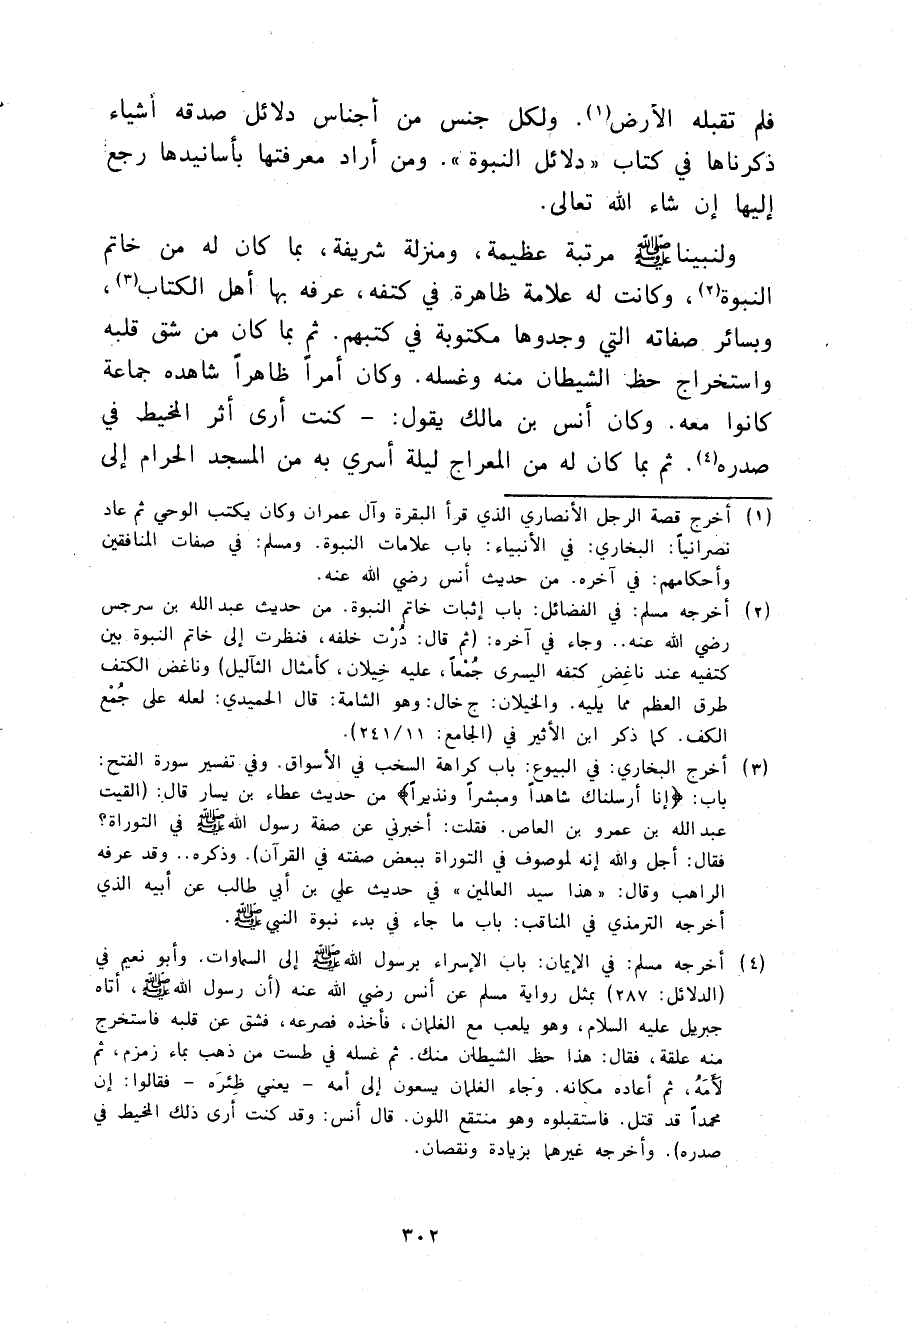 فلم تقبله الأرض(١). ولكل جنس من أجناس دلائل صدقه أشياء
ذكرناها في كتاب «دلائل النبوة». ومن أراد معرفتها بأسانيدها رجع
إليها إن شاء الله تعالى.
ولنبينا ﷺ مرتبة عظيمة، ومنزلة شريفة، بما كان له من خاتم
النبوة(٢)، وكانت له علامة ظاهرة في كتفه، عرفه بها أهل الكتاب(٣)،
وبسائر صفاته التي وجدوها مكتوبة في كتبهم. ثم بما كان من شق قلبه
واستخراج حظ الشيطان منه وغسله. وكان أمراً ظاهراً شاهده جماعة
كانوا معه. وكان أنس بن مالك يقول: - كنت أرى أثر المخيط في
صدره(٤). ثم بما كان له من المعراج ليلة أسري به من المسجد الحرام إلى
(١) أخرج قصة الرجل الأنصاري الذي قرأ البقرة وآل عمران وكان يكتب الوحي ثم عاد
نصرانياً: البخاري: في الأنبياء: باب علامات النبوة. ومسلم: في صفات المنافقين
وأحكامهم: في آخره. من حديث أنس رضي الله عنه.
(٢) أخرجه مسلم: في الفضائل: باب إثبات خاتم النبوة. من حديث عبدالله بن سرجس
رضي الله عنه.. وجاء في آخره: (ثم قال: دُرْت خلفه، فنظرت إلى خاتم النبوة بين
كتفيه عند ناغِضِ كتفه اليسرى جُمْعاً، عليه خِيلان، كأمثال الثآليل) وناغض الكتف
طرق العظم مما يليه. والخيلان: ج خال: وهو الشامة: قال الحميدي: لعله على جُمْع
الكف. كما ذكر ابن الأثير في (الجامع: ٢٤١/١١).
(٣) أخرج البخاري: في البيوع: باب كراهة السخب في الأسواق. وفي تفسير سورة الفتح:
باب: ﴿إنا أرسلناك شاهداً ومبشراً ونذيراً﴾ من حديث عطاء بن يسار قال: (لقيت
عبدالله بن عمرو بن العاص. فقلت: أخبرني عن صفة رسول الله ﷺ في التوراة؟
فقال: أجل والله إنه لموصوف في التوراة ببعض صفته في القرآن). وذكره.. وقد عرفه
الراهب وقال: «هذا سيد العالمين» في حديث علي بن أبي طالب عن أبيه الذي
أخرجه الترمذي في المناقب: باب ما جاء في بدء نبوة النبي ﷺ.
(٤) أخرجه مسلم: في الإيمان: باب الإسراء برسول الله ﷺ إلى السماوات. وأبو نعيم في
(الدلائل: ٢٨٧) بمثل رواية مسلم عن أنس رضي الله عنه (أن رسول الله ﷺ، أتاه
جبريل عليه السلام، وهو يلعب مع الغلمان، فأخذه فصرعه، فشق عن قلبه فاستخرج
منه علقة، فقال: هذا حظ الشيطان منك. ثم غسله في طست من ذهب بماء زمزم، ثم
لَأَمَهُ، ثم أعاده مكانه. وجاء الغلمان يسعون إلى أمه - يعني ظِئرَه - فقالوا: إن
محمداً قد قتل. فاستقبلوه وهو منتقع اللون. قال أنس: وقد كنت أرى ذلك المخيط في
صدره). وأخرجه غيرهما بزيادة ونقصان.
٣٠٢